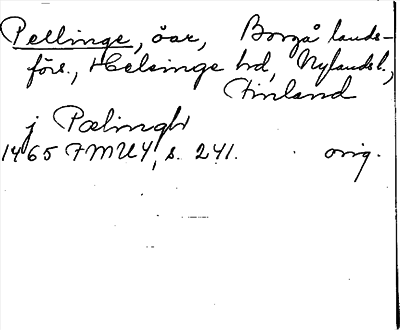 Pellinge, öar, Borgå lands-
förs., Helsinge hd, Nylandsl.,
Finland
j Pælingh
1465 FMU4, s. 241. orig.